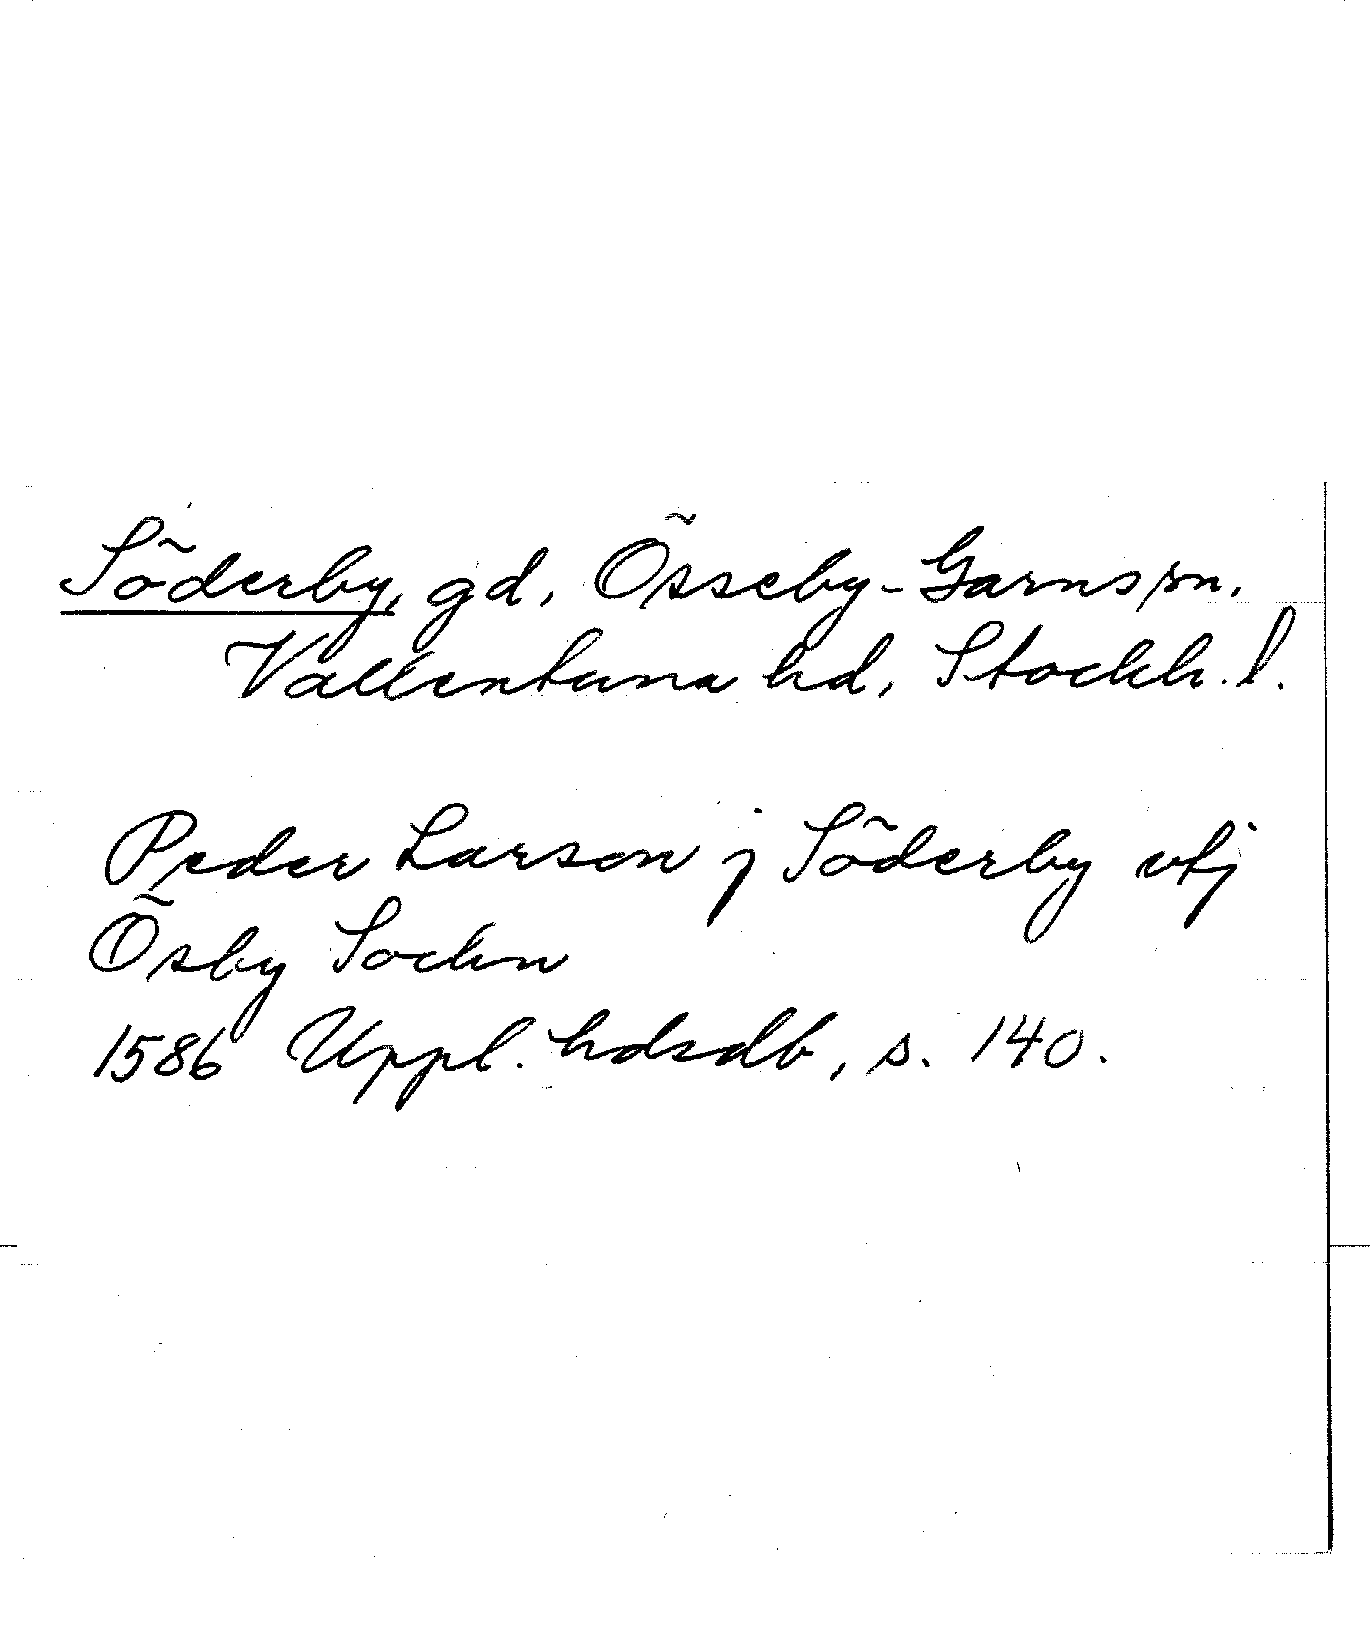 Söderby, gd, Össeby-Garns sn.
Vallentuna hd, Stockh. l.
Peder Larson j Söderby vtj
Ösby Sochn
1586 Uppl. hdsdb, s. 140.